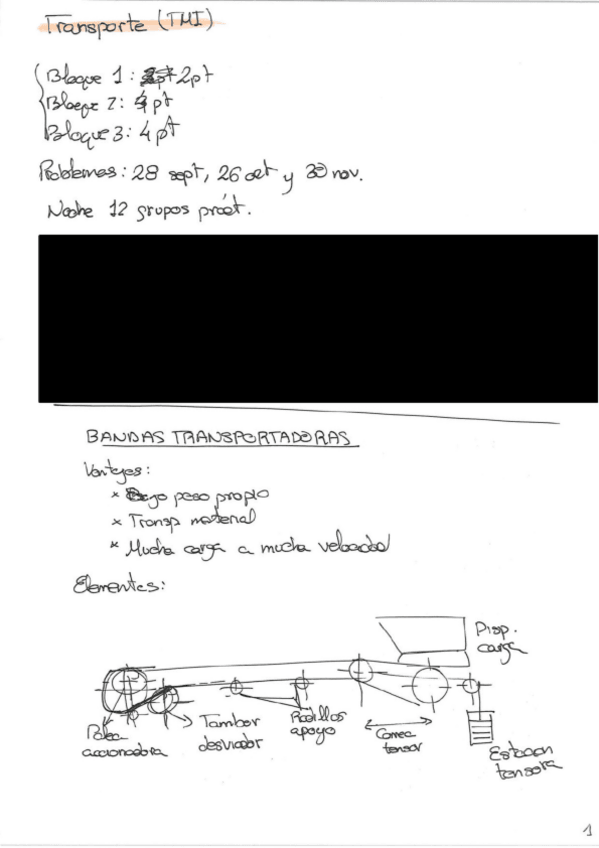 Transporte (TMI)
Bloque 1: 2pt
Bloque 2: 4 pt
Bloque 3: 4 pt
Problemas: 28 sept, 26 oct y 30 nov.
Noche 12 grupos práct.
BANDAS TRANSPORTADORAS
Ventajas:
* Bajo peso propio
* Transp material
* Mucha carga a mucha velocidad
Elementos:
Disp.
carga
Polea
accionadora
Tambor
desviador
Rodillos
apoyo
Correa
tensor
Estacion
tensora
1